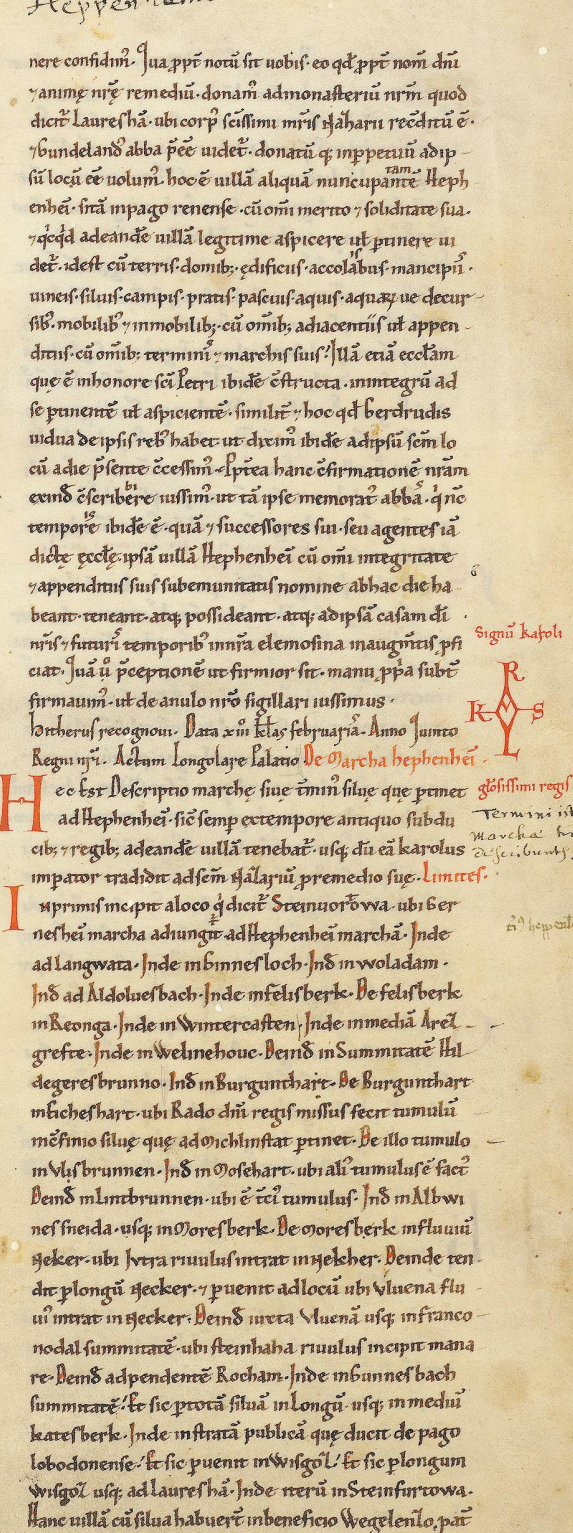 nere confidim̄. Qua ꝓpt̄ notū sit uobis. eo qđ ꝓpt̄ nom̄ dn̄i
⁊ animę nr̄ę remediū. donam̄ ad monasteriū nr̄m quod
dicit̄ Lauresħā. ubi corp᷒ sc̄issimi mr̄is Naƶarii req̄ditū ē.
⁊ Gundeland᷒ abba p̄ēē uidet̄. donatū q; inp̄petuū adip-
sū locū eē volum̄. hoc ē uillā aliquā nuncupantē Heph
enheī. sitā in pago renense. cū om̄i merito ⁊ soliditate sua.
⁊ q̄cq̄d ad eandē uillā legitime aspicere ul̄ ꝑtinere ui
det̄. id est cū terris. domib;. ędificiis. accolabus. mancipiis.
uineis. siluis. campis. pratis. pascuis. aquis. aquarū ue decur-
sib᷒. mobilib᷒ ⁊ inmobilib;. cū om̄ib; adiacentiis ul̄ appen-
ditiis. cū om̄ib; terminis ⁊ marchis suis. Illā etiā eccl̄am
quę ē in honore sc̄i Petri ibidē c̄structa. in integrū ad
se ꝑtinentē ul̄ aspicientē. similit̄ ⁊ hoc qđ Gerdrudis
uidua de ipsis reb᷒ habet ut dixim̄ ibidē ad ipsū sc̄m lo
cū a die p̄sente c̄cessim̄. Propt̄ea hanc c̄firmationē nr̄am
exinđ c̄scribere iussim̄. ut tā ipse memorat᷒ abbas. q̄ nc̄
tempore ibidē ē. quā ⁊ successores sui. seu agentes iā
dictę ęccl̄ę. ipsā uillā Hephenheī cū om̄i integritate
⁊ appenditiis suis sub emunitatis nomine ab hac die ha
beant. teneant. atq; possideant. atq; ad ipsā casam dī
nr̄is ⁊ futuris temporib᷒ in nr̄a elemosina in augm̄tis ꝓfi
ciat. Quā ů p̄ceptionē ut firmior sit. manu ꝓp̄a subt̄
firmauim̄. ul̄ de anulo nr̄o sigillari iussimus.
Signū karoli
K R S L
gl̄osissimi regis
hitherus recognoui. Data xiii kl̄as februariā. Anno Quinto
Regni nr̄i. Actum Longolare Palatio De Marcha hephenheī.
Hec Est Descriptio marchę siue t̄minꝰ siluę quę ꝑtinet
ad Hephenheī. sic̄ semp̄ ex tempore antiquo sub du
cib; ⁊ regib; ad eandē uillā tenebat̄. usq; dū eā karolus
imperator tradidit ad sc̄m Naƶariū ꝓ remedio suę. Limites.
Inprimis incipit a loco q̄ dicit̄ Steinuorōwa. ubi Ger
nesheī marcha adiungit̄ ad Hephenheī marchā. Inde
ad langwata. Inde in Ginnesloch. Inđ in woladam.
Inđ ad Aldoluesbach. Inde in felisberk. De felisberk
in Reonga. Inde in Wintercasten. Inde in mediā Arel-
grefte. Inde in Welinehouc. Deinđ in Summitatē Hil
degeresbrunno. Inđ in Burgunthart. De Burgunthart
in Eicheshart. ubi Rado dn̄i regis missus fecit tumulū
in c̄finio siluę quę ad Michlinstat ꝑtinet. De illo tumulo
in Vlisbrunnen. Inđ in Mosehart. ubi ali᷒ tumulus ē fact᷒
Deinđ in lintbrunnen. ubi ē tc̄i᷒ tumulus. Inđ in Albwi
nessneida. usq; in Moresberk. De Moresberk in fluuiū
Neker. ubi Iutra riuulus intrat in Nekher. Deinde ten
dit ꝑ longū Necker. ⁊ ꝑuenit ad locū ubi Vluena flu
ui᷒ intrat in Necker. Deinđ iuxta Vluenā usq; in franco-
nodal summitatē. ubi steinhaha riuulus incipit mana
re. Deinđ ad pendentē Rocham. Inde in Gunnesbach
summitatē. Et sic ꝑ totā siluā in longū. usq; in mediū
katesberk. Inde in stratā publicā quę ducit de pago
lobodonense. Et sic ꝑuenit in wisgoz. Et sic ꝑ longum
wisgoz usq; ad lauresħā. Inde iterū in Steinfurtowa.
Hanc uillā cū silua habuer̄t in beneficio Wegelenzo, pat̄